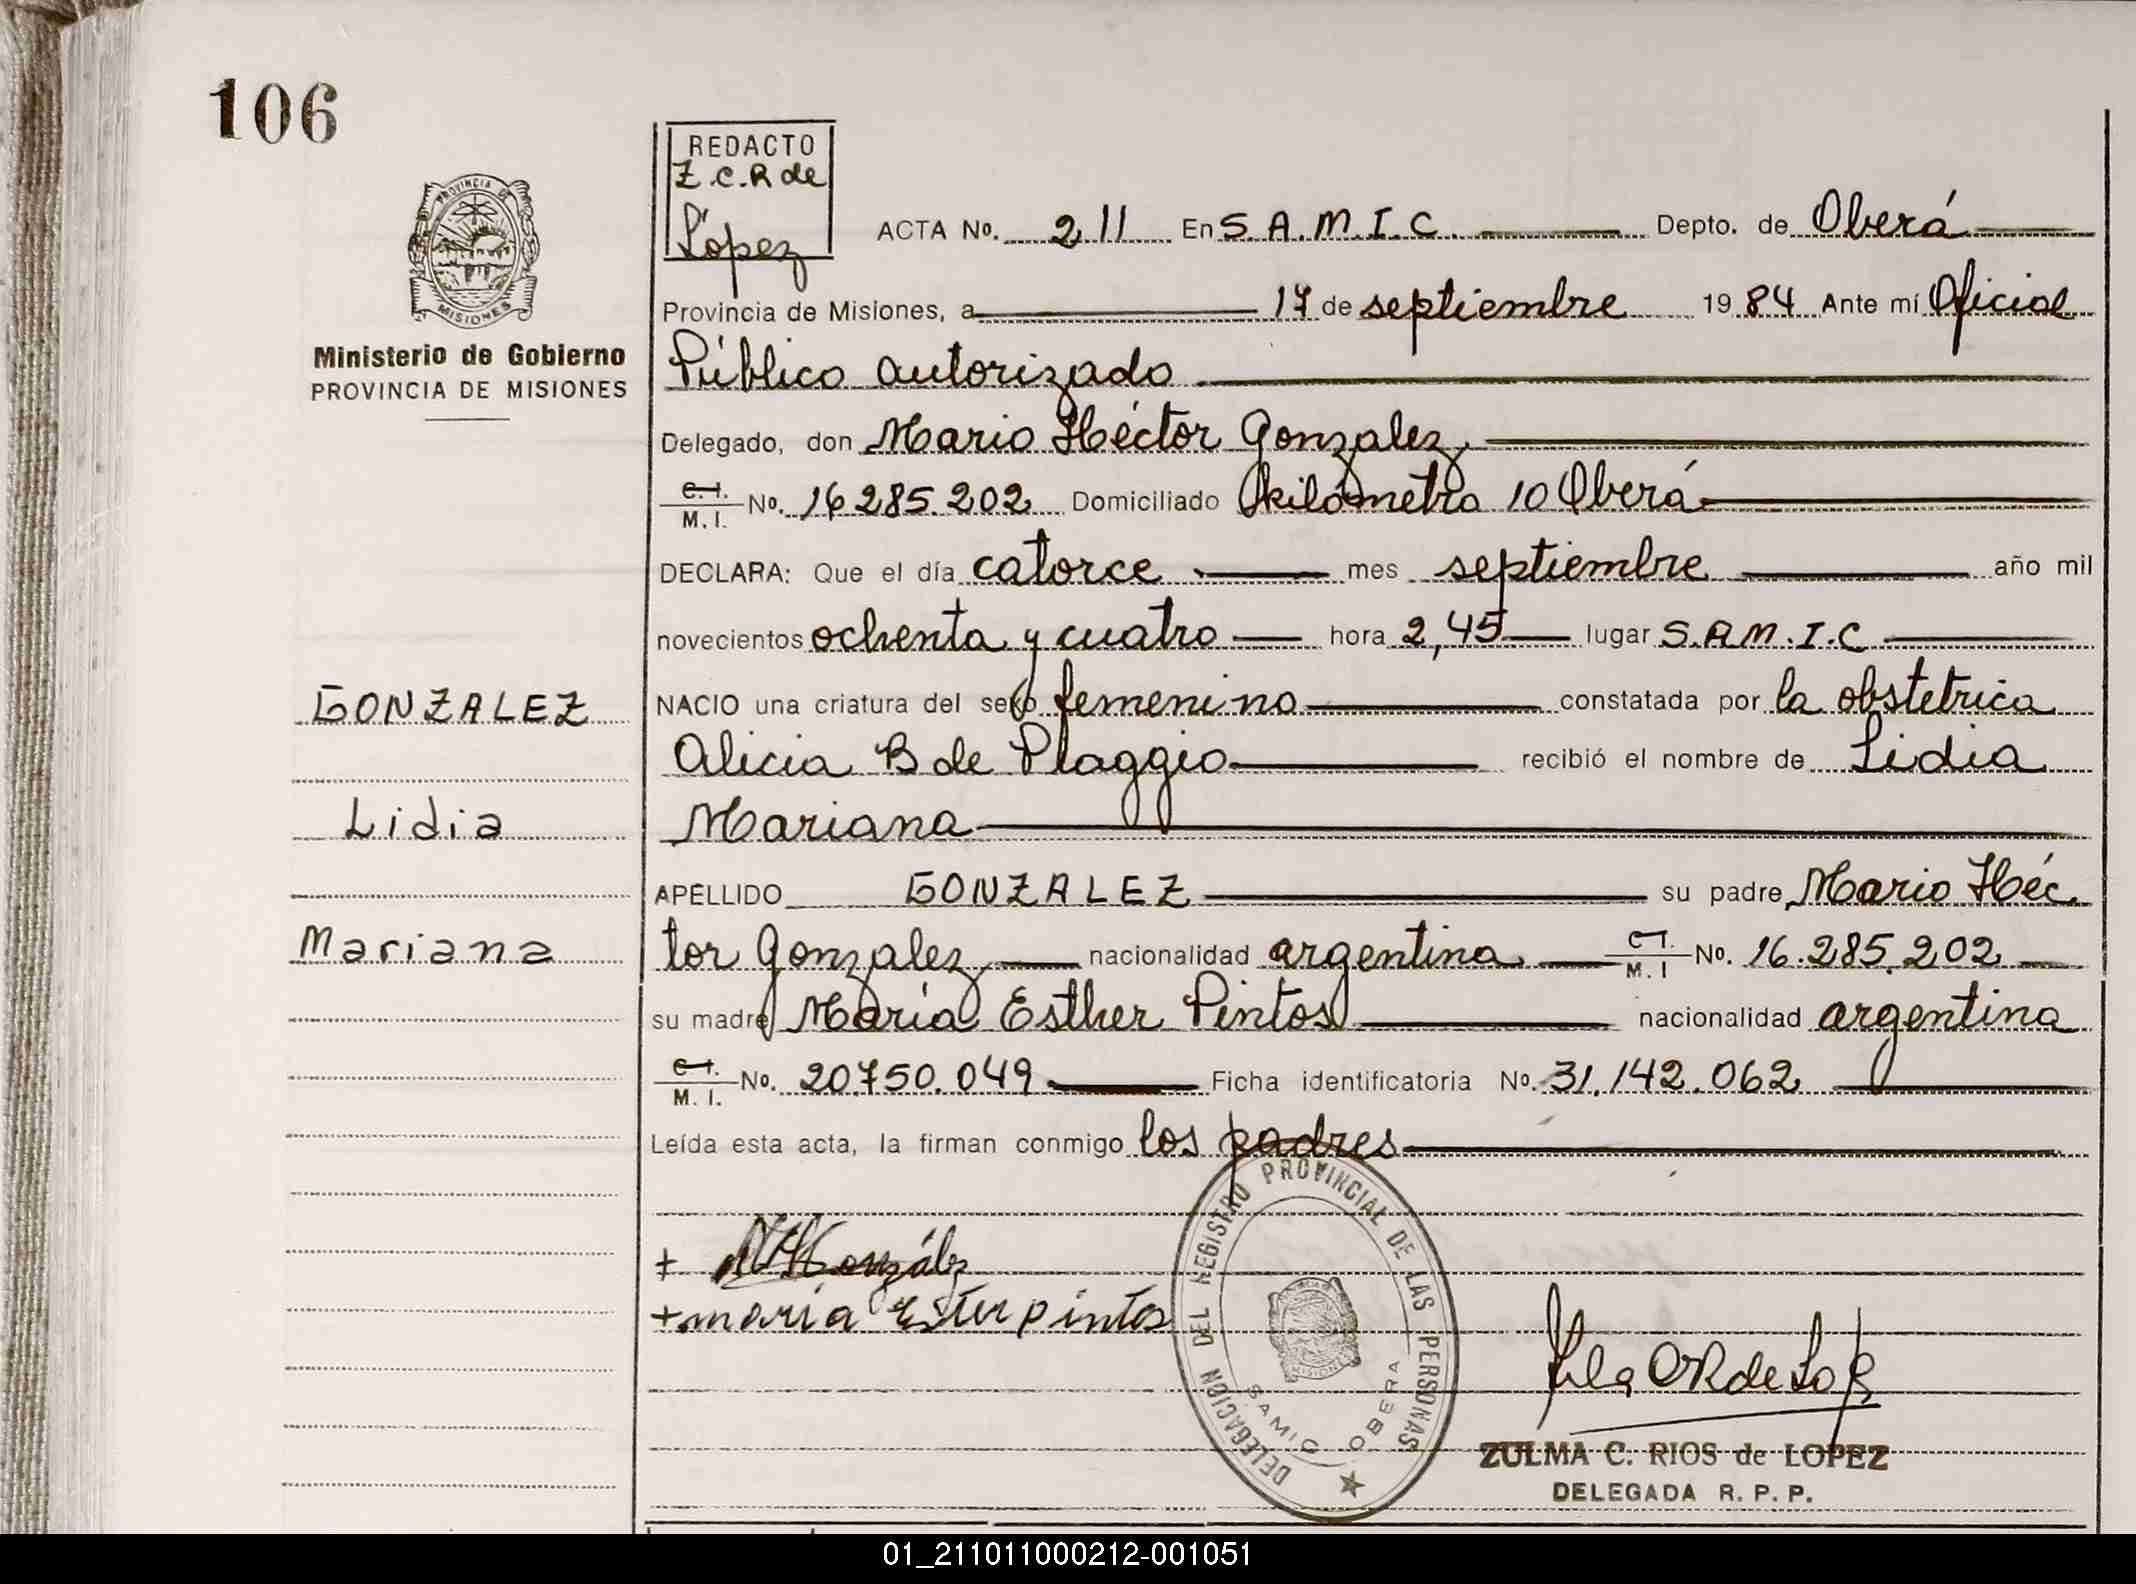 106
REDACTO
Z.C.R de
López
ACTA No. 211 En S.A.M.I.C. Depto. de Oberá
Provincia de Misiones, a 17 de septiembre 1984 Ante mí Oficial
Público autorizado
PROVINCIA DE
MISIONES
Ministerio de Gobierno
PROVINCIA DE MISIONES
Delegado, don Mario Héctor Gonzalez
C.I. / M.I. No. 16285.202 Domiciliado kilómetro 10 Oberá
DECLARA: Que el día catorce mes septiembre año mil
novecientos ochenta y cuatro hora 2,45 lugar S.A.M.I.C
GONZALEZ
NACIO una criatura del sexo femenino constatada por la obstetrica
Alicia B de Plaggio recibió el nombre de Lidia
Lidia
Mariana
APELLIDO GONZALEZ su padre Mario Héc
Mariana
tor Gonzalez nacionalidad argentina C.I. / M.I No. 16.285.202
su madre María Esther Pintos nacionalidad argentina
C.I. / M.I. No. 20750.049 Ficha identificatoria No. 31.142.062
Leída esta acta, la firman conmigo los padres
+ MHGonzález
+ maria Ester pintos
DELEGACION DEL REGISTRO PROVINCIAL DE LAS PERSONAS
SAMIC OBERA
ZULMA C. RIOS de LOPEZ
DELEGADA R. P. P.
01_211011000212-001051